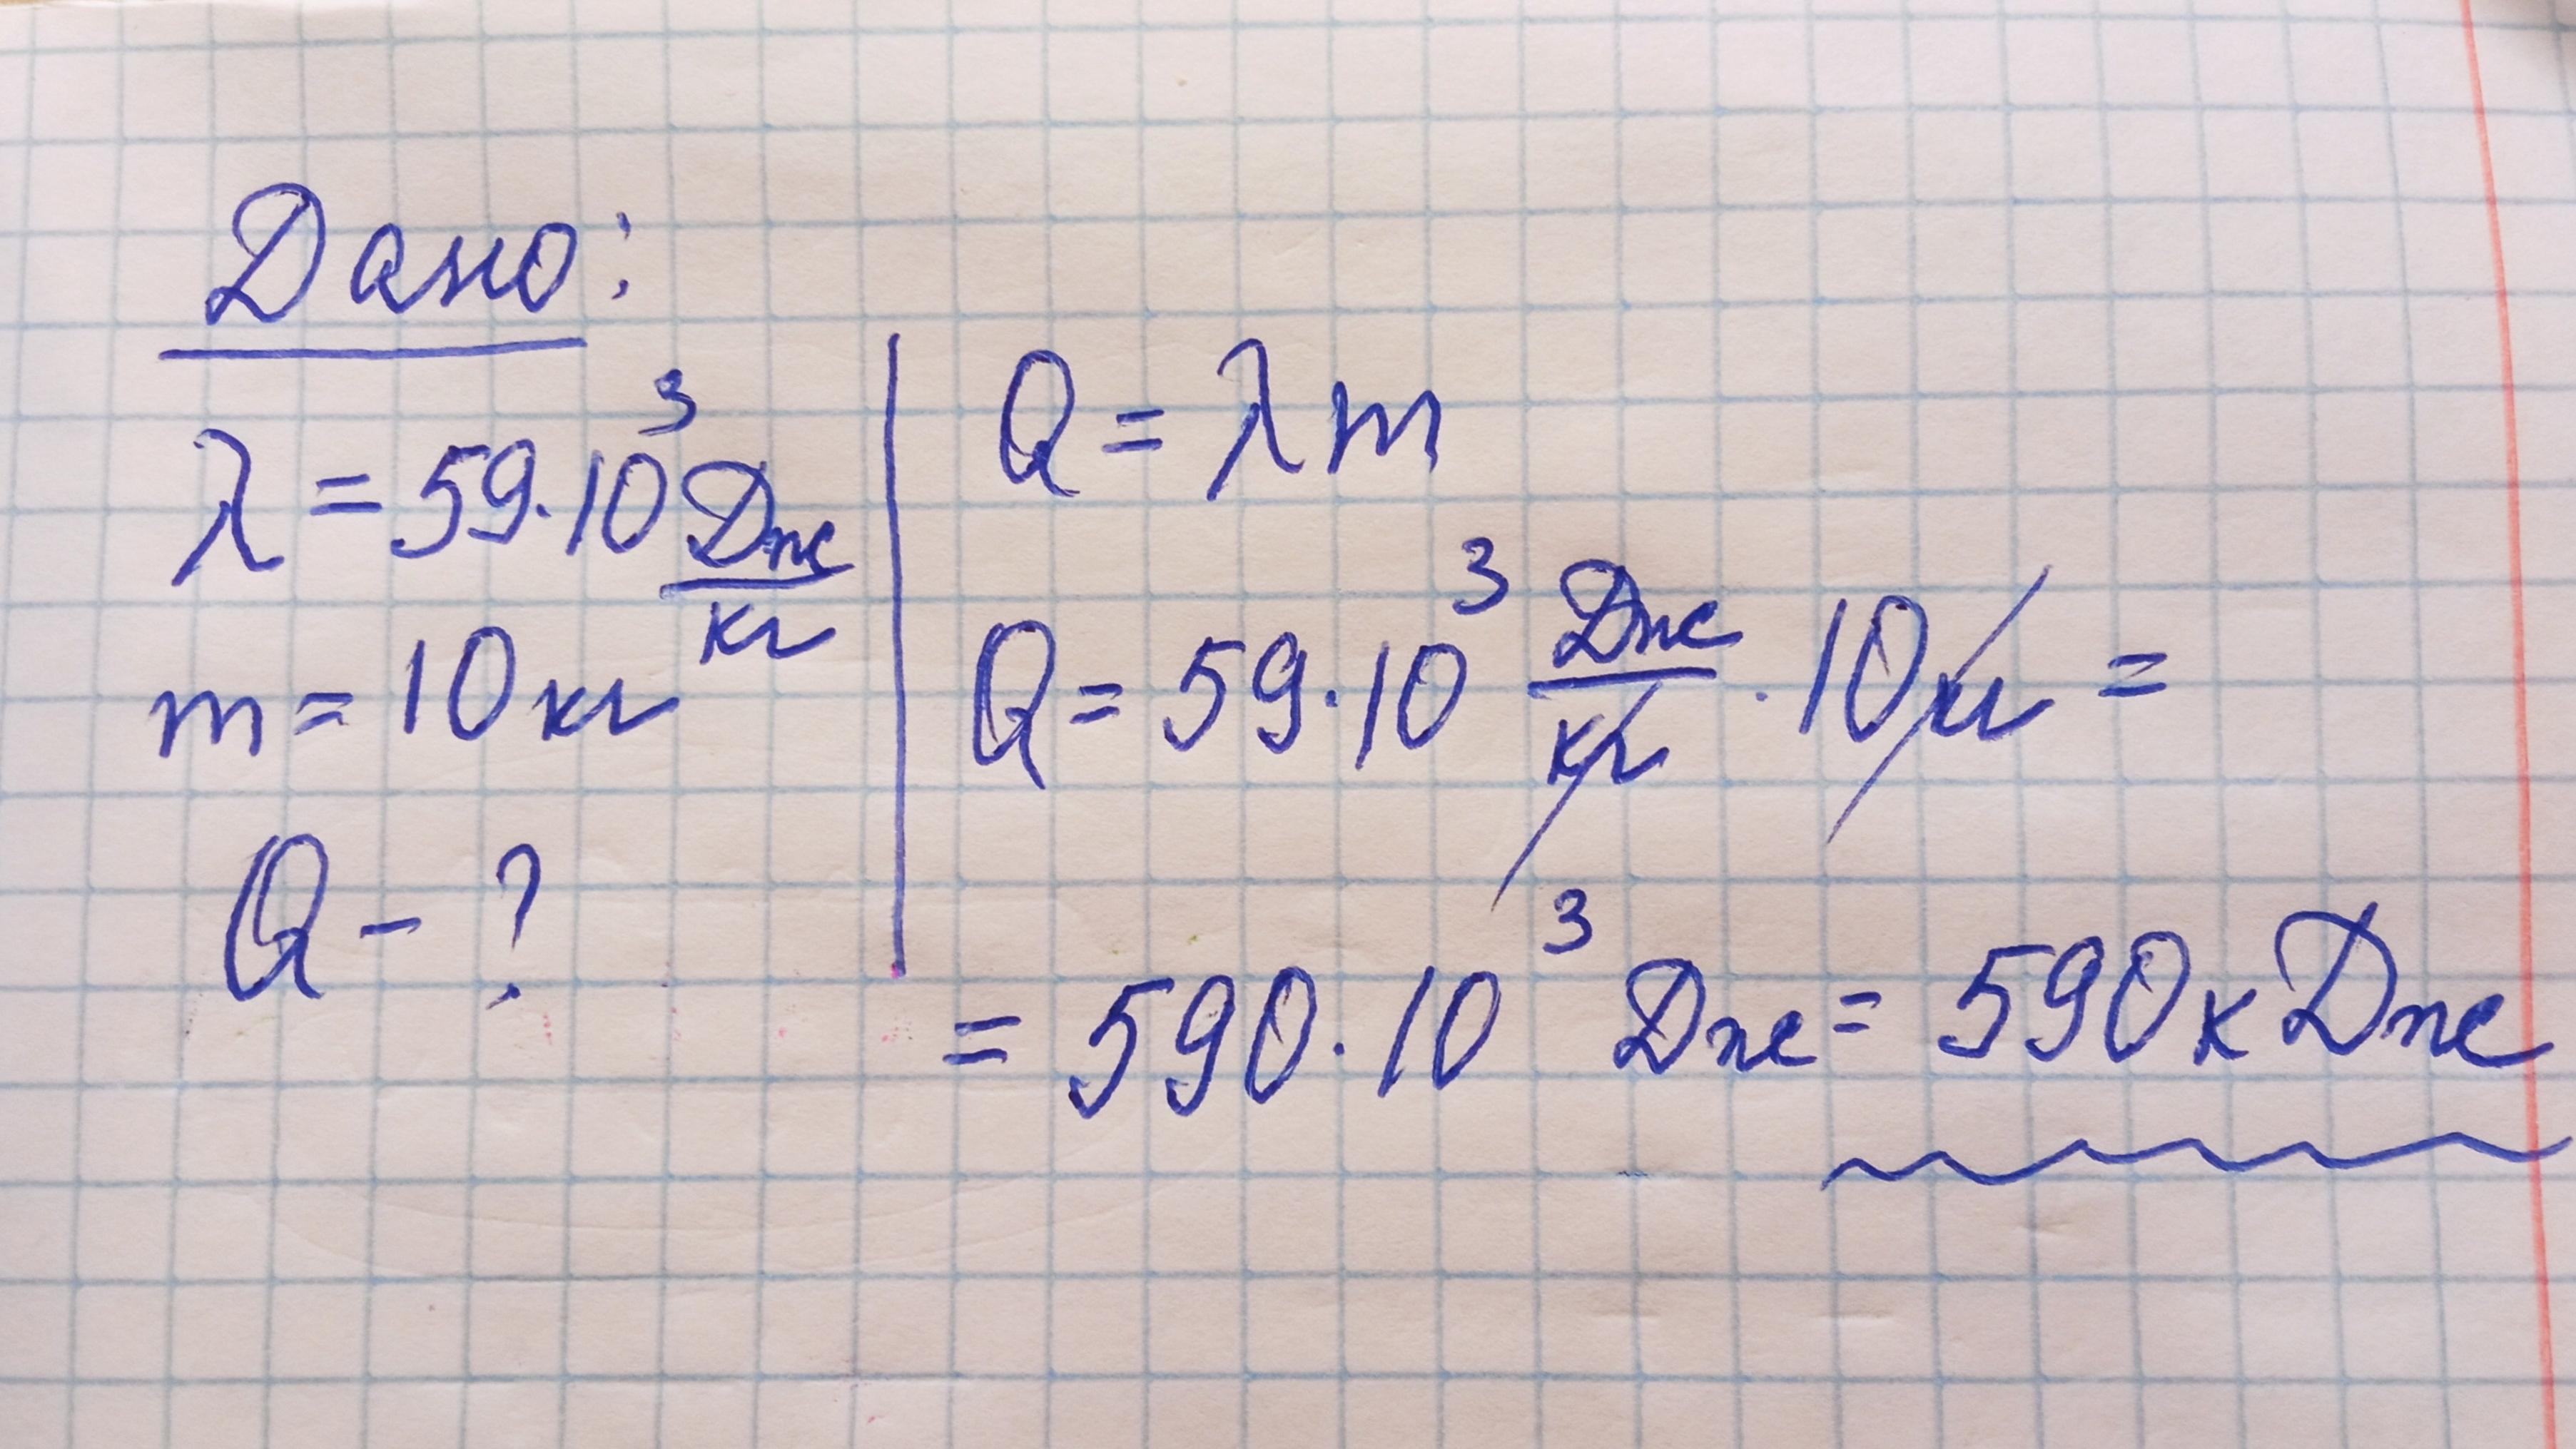 Дано:
λ = 59·10³ Дж/кг
m = 10 кг
Q - ?
Q = λm
Q = 59·10³ Дж/кг · 10кг =
= 590·10³ Дж = 590кДж